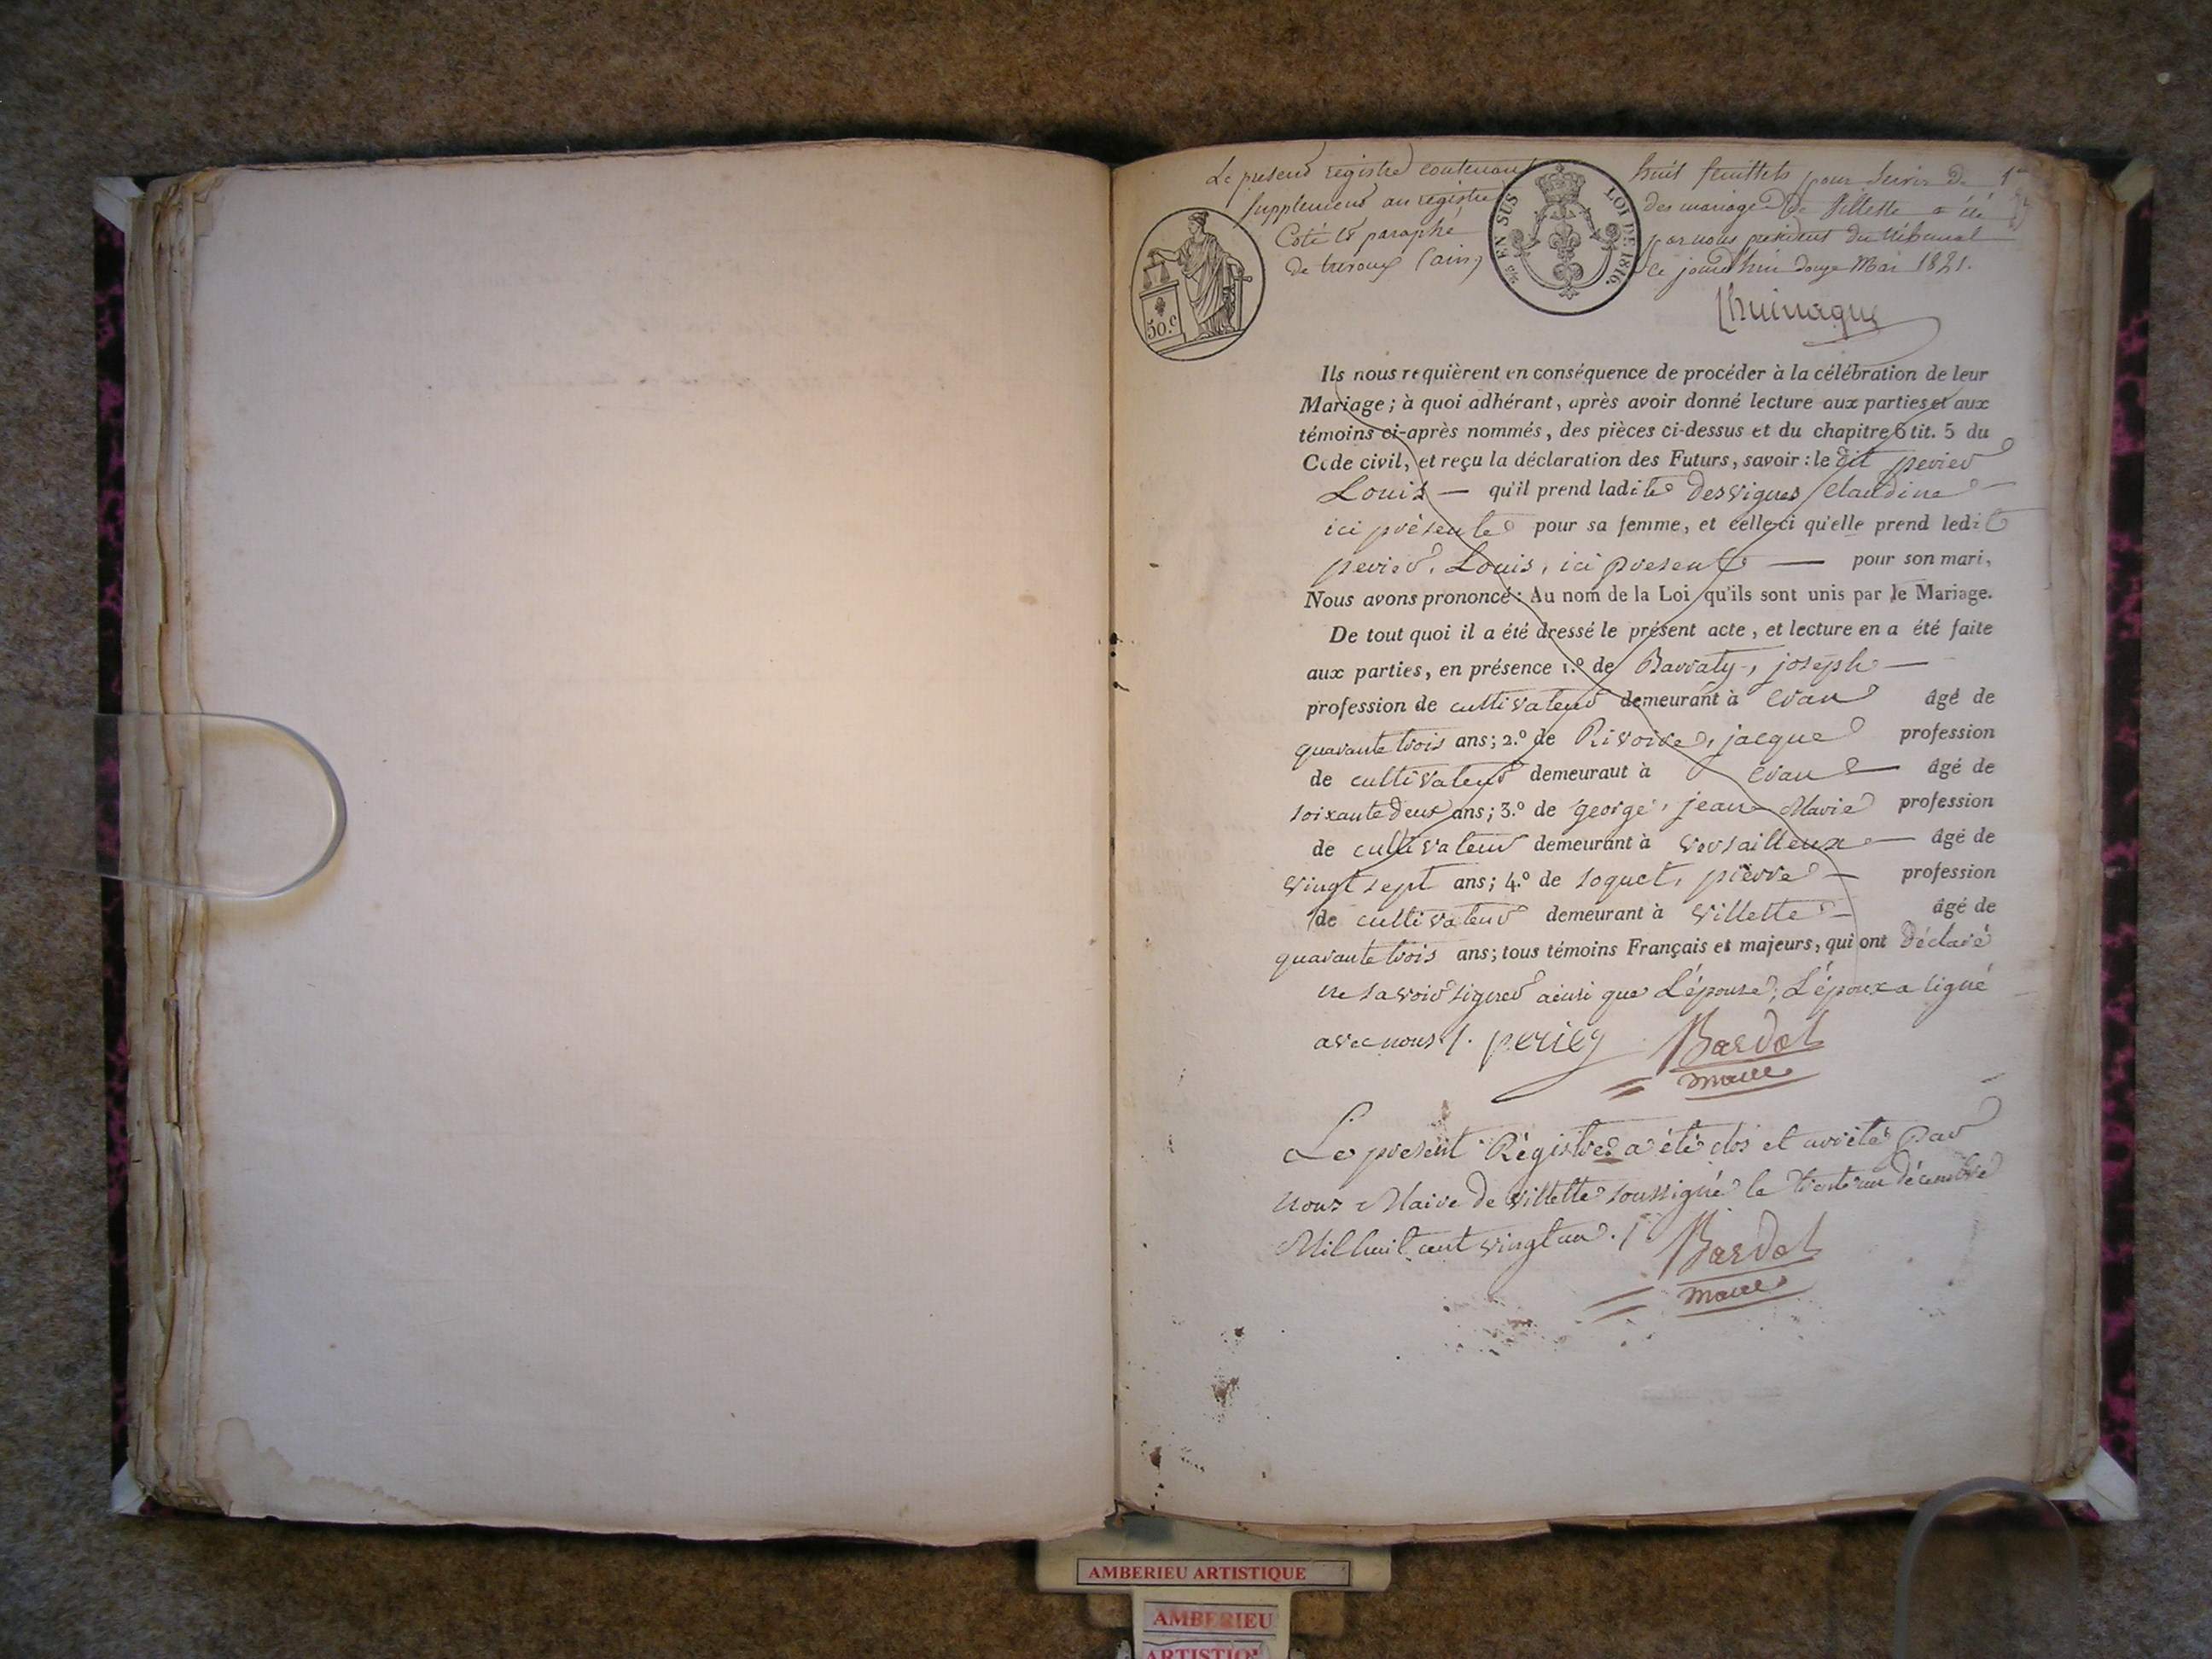 Le present registre contenant huit feuillets pour servir de 1er
supplement au registre des mariages de Villette a été
Coté et paraphé par nous president du tribunal
de trevoux (ain) ce jourd'hui douze Mai 1821.
EN SUS
LOI DE 1816.
50.c
Ils nous requièrent en conséquence de procéder à la célébration de leur
Mariage; à quoi adhérant, après avoir donné lecture aux parties et aux
témoins ci-après nommés, des pièces ci-dessus et du chapitre 6 tit. 5 du
Code civil, et reçu la déclaration des Futurs, savoir: le dit perier
Louis — qu'il prend ladite Desvignes Claudine —
ici présente pour sa femme, et celle-ci qu'elle prend ledit
perier, Louis, ici present — pour son mari,
Nous avons prononcé: Au nom de la Loi qu'ils sont unis par le Mariage.
De tout quoi il a été dressé le présent acte, et lecture en a été faite
aux parties, en présence 1.º de Barraty, joseph —
profession de cultivateur demeurant à Cran âgé de
quarante trois ans; 2.º de Rivoire, jacque profession
de cultivateur demeuraut à Cran — âgé de
soixante deux ans; 3.º de george, jean Marie profession
de cultivateur demeurant à versailleux — âgé de
vingt sept ans; 4.º de soquet, pierre — profession
de cultivateur demeurant à villette — âgé de
quarante trois ans; tous témoins Français et majeurs, qui ont déclaré
ne savoir signer ainsi que L'épouse; L'époux a signé
avec nous /. perier Bardol
maire
Le present Régistre a été clos et arrêté par
nous Maire de villette soussigné le trente un décembre
Mil huit cent vingt un ./ Bardol
maire
AMBERIEU ARTISTIQUE
AMBERIEU
ARTISTIQUE